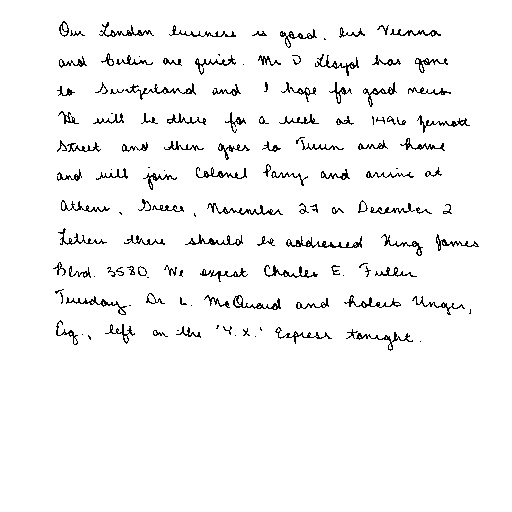 Our London business is good, but Vienna
and Berlin are quiet. Mr D Lloyd has gone
to Switzerland and I hope for good news
He will be there for a week at 1496 Zermott
Street and then goes to Turin and Rome
and will join Colonel Parry and arrive at
Athens, Greece, November 27 or December 2
Letters there should be addressed King James
Blvd. 3580. We expect Charles E. Fuller
Tuesday. Dr L. McQuaid and Robert Unger,
Esq., left on the 'Y.X.' Express tonight.